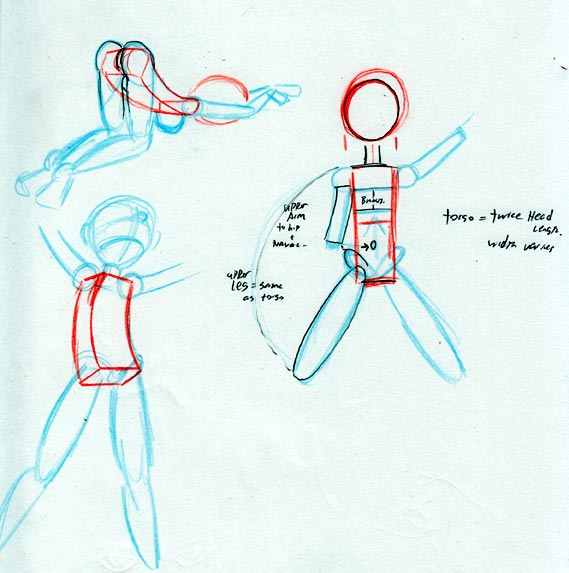 upper
Arm
to hip
+
navac-
upper
Leg = same
as torso
torso = twice Head
Length.
width varies